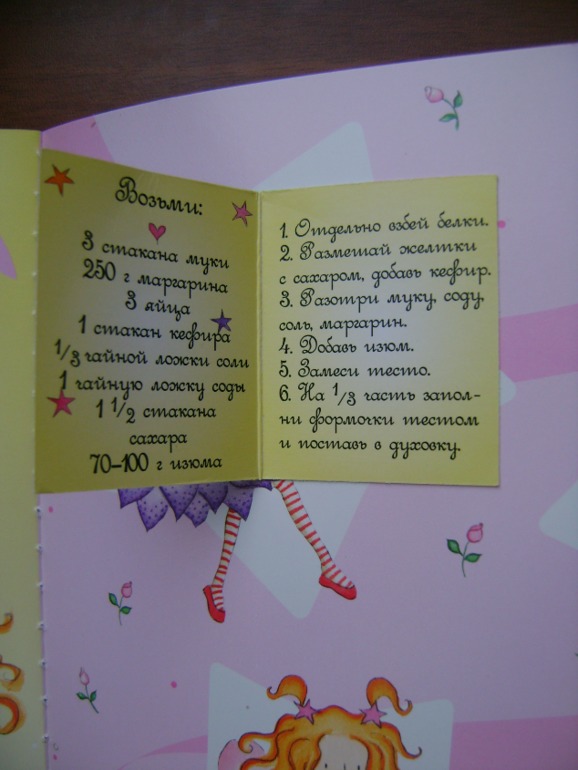 Возьми:
3 стакана муки
250 г маргарина
3 яйца
1 стакан кефира
1/3 чайной ложки соли
1 чайную ложку соды
1 1/2 стакана
сахара
70–100 г изюма
1. Отдельно взбей белки.
2. Размешай желтки
с сахаром, добавь кефир.
3. Разотри муку, соду,
соль, маргарин.
4. Добавь изюм.
5. Замеси тесто.
6. На 1/3 часть запол-
ни формочки тестом
и поставь в духовку.